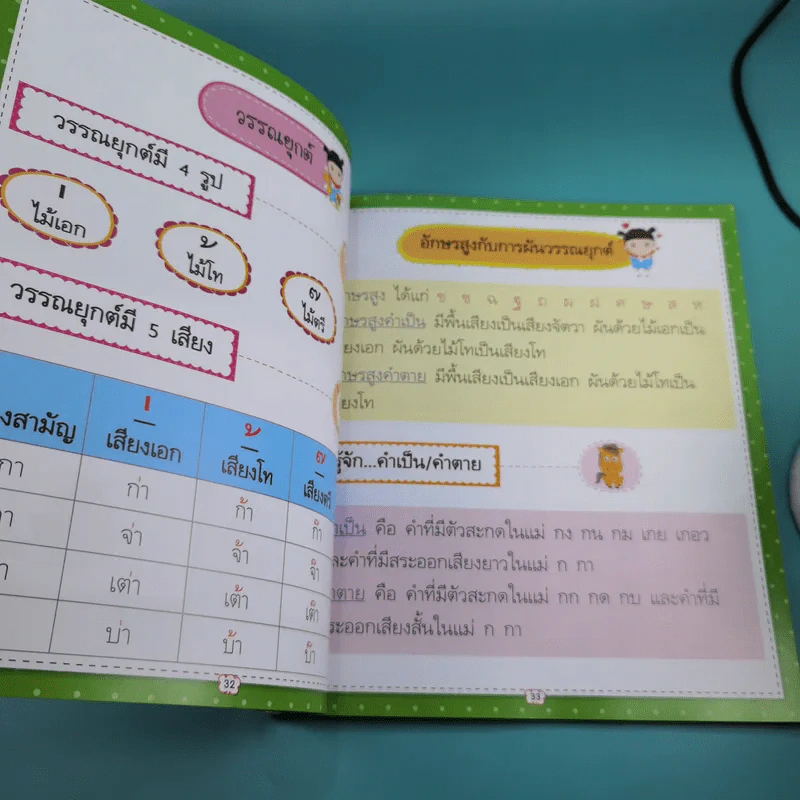 วรรณยุกต์
วรรณยุกต์มี 4 รูป
่ ้ ๊
ไม้เอก ไม้โท ไม้ตรี
วรรณยุกต์มี 5 เสียง
่ ้ ๊
งสามัญ เสียงเอก เสียงโท เสียงตรี
กา ก่า ก้า ก๊า
จ่า จ้า จ๊า
เต่า เต้า เต๊า
บ่า บ้า บ๊า
32
อักษรสูงกับการผันวรรณยุกต์
ษรสูง ได้แก่ ข ฃ ฉ ฐ ถ ผ ฝ ศ ษ ส ห
ษรสูงคำเป็น มีพื้นเสียงเป็นเสียงจัตวา ผันด้วยไม้เอกเป็น
ยงเอก ผันด้วยไม้โทเป็นเสียงโท
ษรสูงคำตาย มีพื้นเสียงเป็นเสียงเอก ผันด้วยไม้โทเป็น
ยงโท
รู้จัก...คำเป็น/คำตาย
เป็น คือ คำที่มีตัวสะกดในแม่ กง กน กม เกย เกอว
และคำที่มีสระออกเสียงยาวในแม่ ก กา
ตาย คือ คำที่มีตัวสะกดในแม่ กก กด กบ และคำที่มี
ระออกเสียงสั้นในแม่ ก กา
33